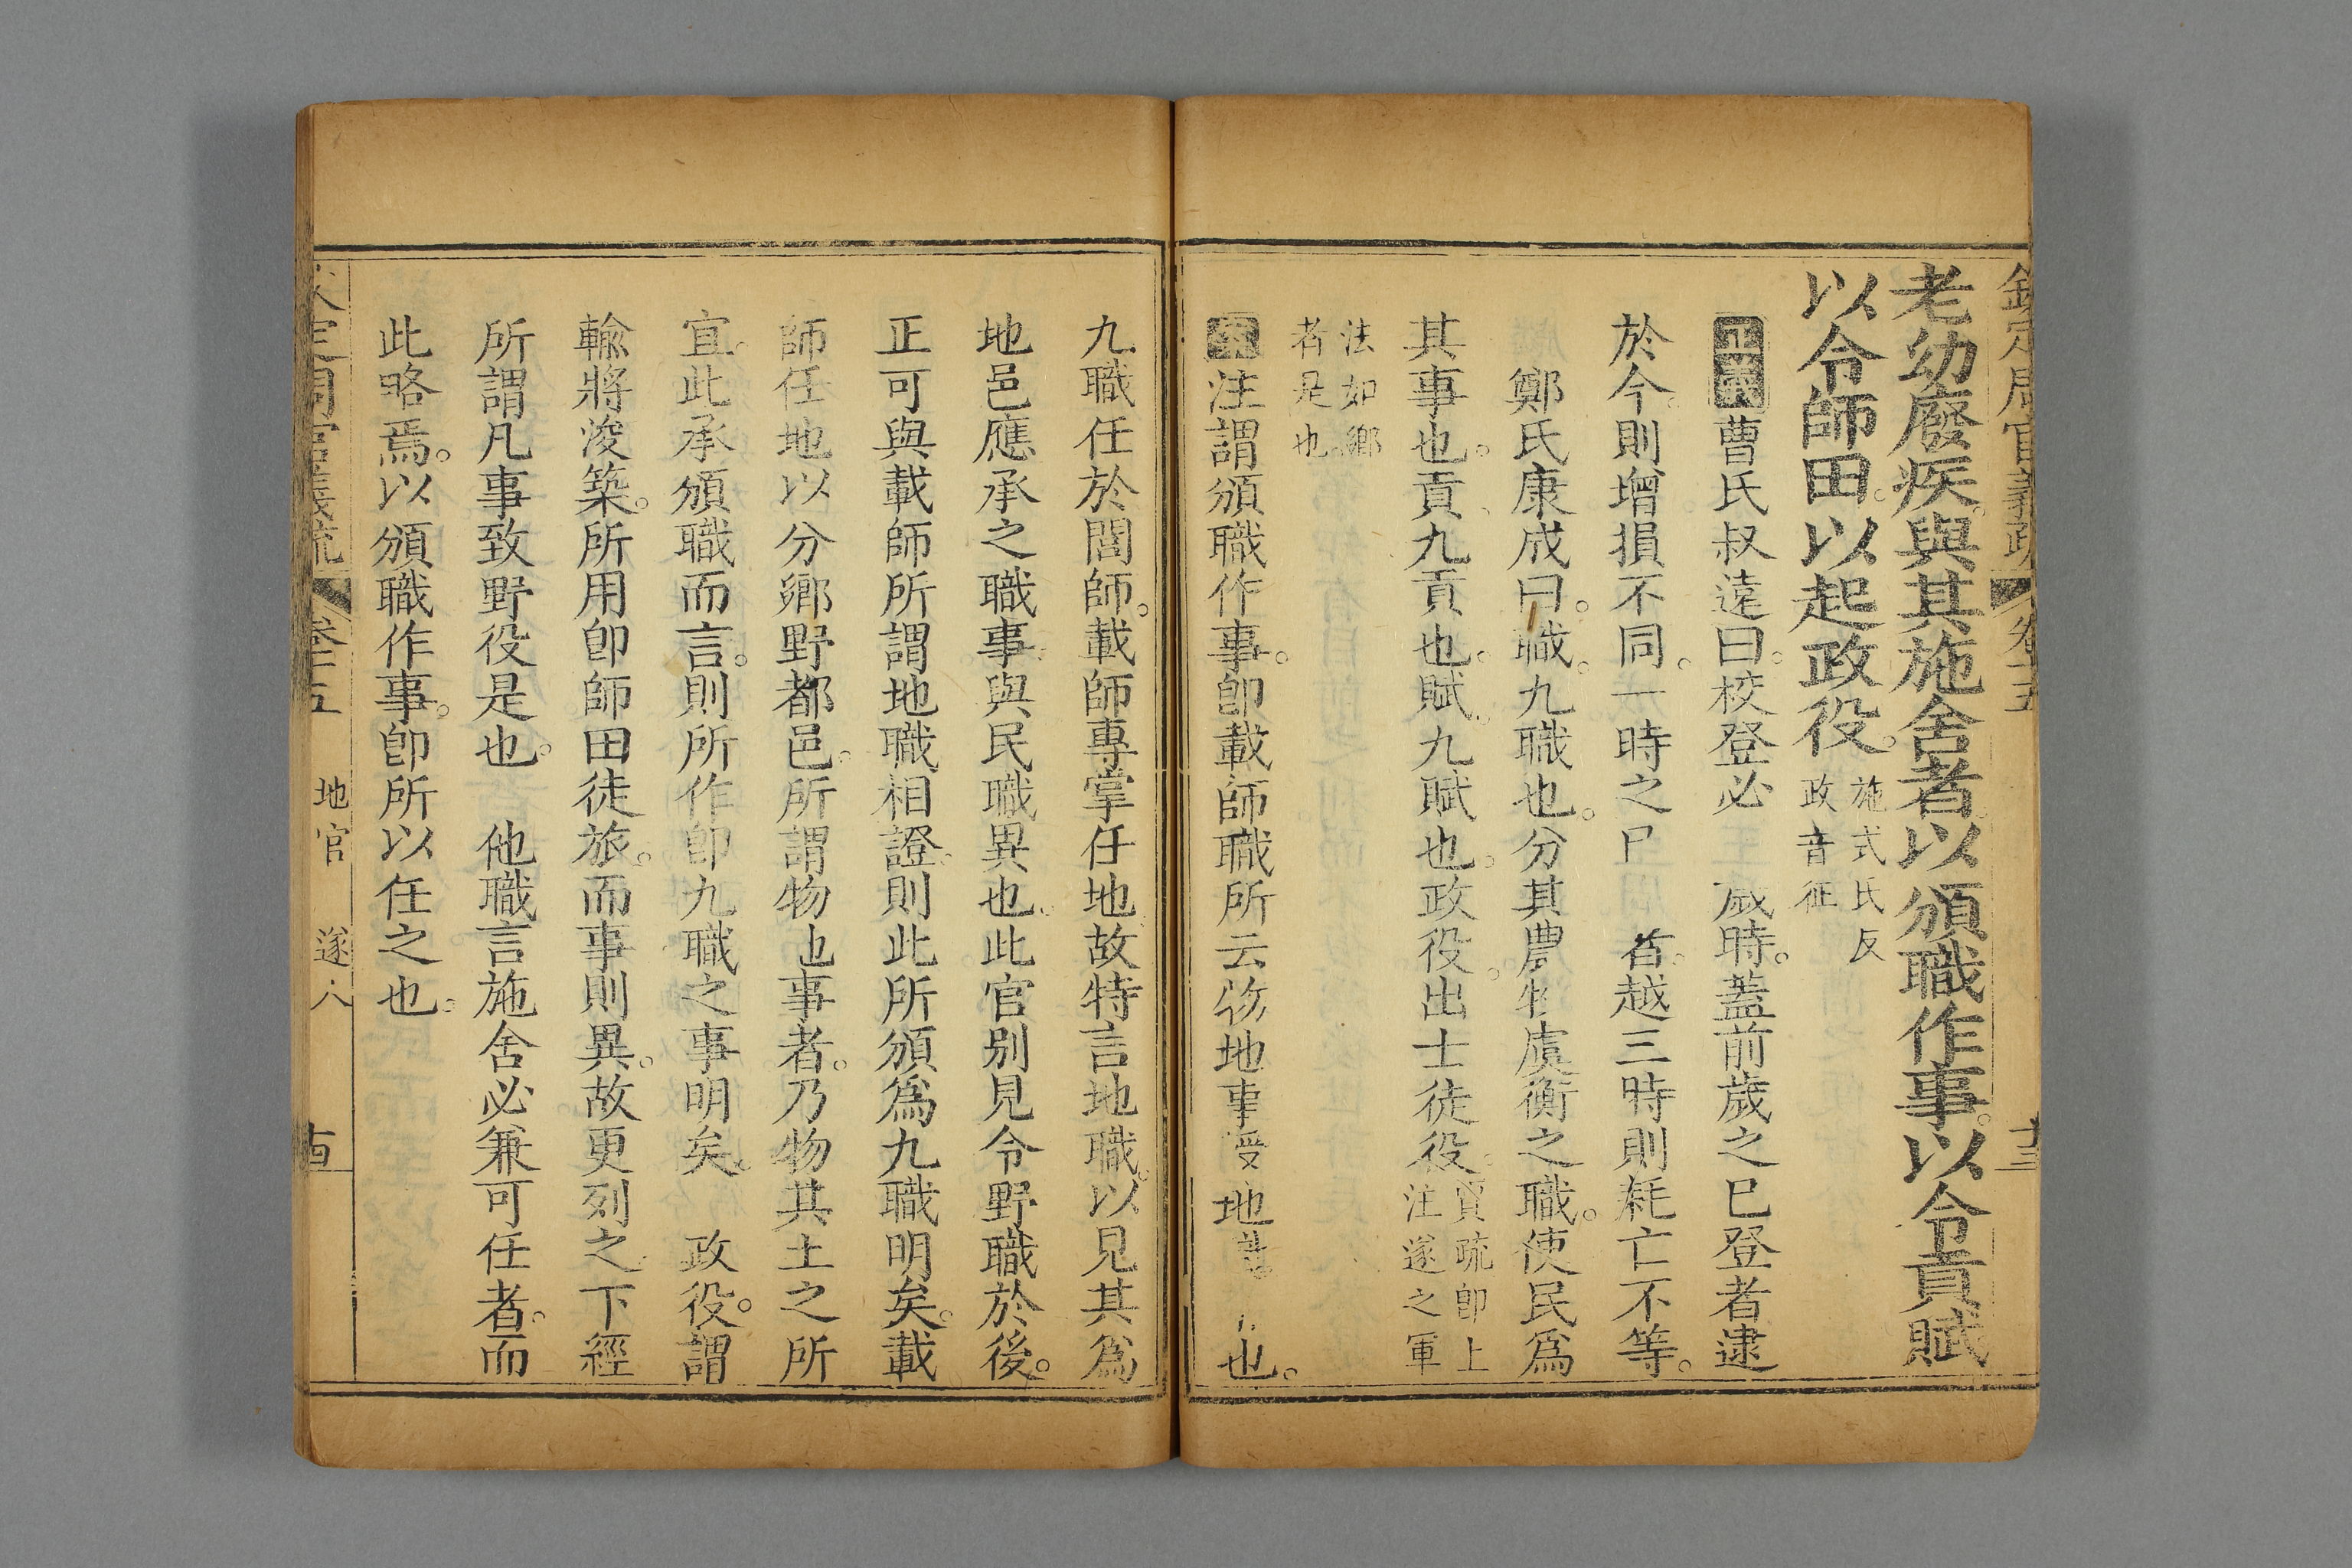 欽定周官義疏 卷十五 十三
老幼廢疾。與其施舍者。以頒職作事。以令貢賦
以令師田。以起政役。施式氏反
政音征
正義曹氏叔遠曰。校登必 歲時。蓋前歲之已登者逮
於今。則增損不同。一時之 者。越三時則耗亡不等。
鄭氏康成曰。職。九職也。分其農牧虞衡之職。使民爲
其事也。貢。九貢也。賦。九賦也。政役。出士徒役。賈疏卽上
注遂之軍
法如鄉
者是也。
案注謂頒職作事。卽載師職所云物地事受地 也。
九職任於閭師。載師專掌任地。故特言地職。以見其爲
地邑應承之職事。與民職異也。此官别見令野職於後。
正可與載師所謂地職相證。則此所頒爲九職明矣。載
師任地以分鄉野都邑。所謂物也事者。乃物其土之所
宜。此承頒職而言。則所作卽九職之事明矣。 政役。謂
輸將浚築。所用卽師田徒旅。而事則異。故更列之。下經
所謂凡事致野役是也。 他職言施舍必兼可任者。而
此略焉。以頒職作事。卽所以任之也。
欽定周官義疏 卷十五 地官 遂人